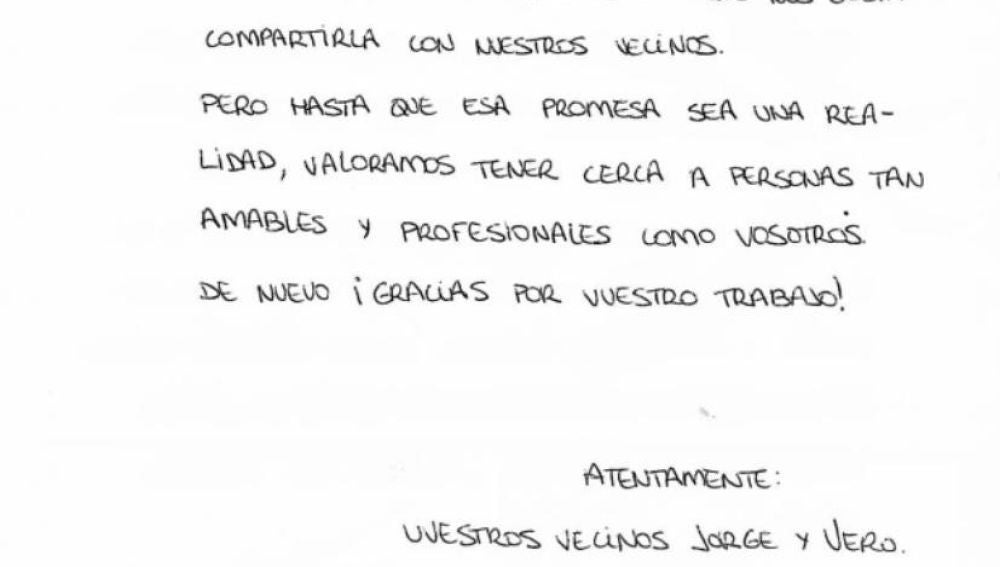 COMPARTIRLA CON NUESTROS VECINOS.
PERO HASTA QUE ESA PROMESA SEA UNA REA-
LIDAD, VALORAMOS TENER CERCA A PERSONAS TAN
AMABLES Y PROFESIONALES COMO VOSOTROS.
DE NUEVO ¡GRACIAS POR VUESTRO TRABAJO!
ATENTAMENTE:
VUESTROS VECINOS JORGE Y VERO.